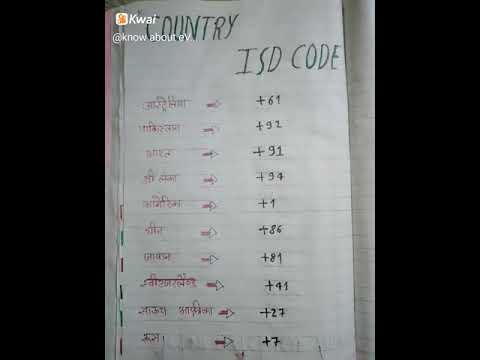 Kwai
@know about eV..
COUNTRY
ISD CODE
आस्ट्रेलिया +61
पाकिस्तान +92
भारत +91
श्रीलंका +94
अमेरिका +1
चीन +86
जापान +81
स्वीटजरलैण्ड +41
साऊथ आफ्रीका +27
रूस +7